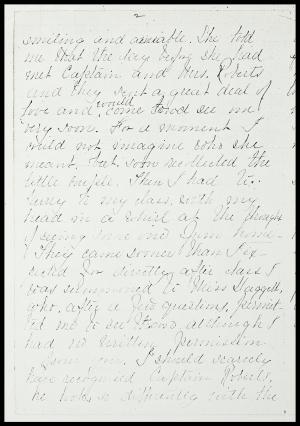 2
smiling and amiable. She told
me that the day before she had
met Captain and Mrs. Roberts
and they sent a great deal of
love and would come and see me
very soon. For a moment I
could not imagine who she
meant, but soon recollected the
little people. Then I had to
hurry to my class, with my
head in a whirl at the thought
of seeing some one from home.
They came sooner than I ex-
pected for directly after class I
was summoned to Miss Daggett,
who, after a few questions, permit-
ted me to see them, although I
had no written permission
from you. I should scarcely
have recognized Captain Roberts,
he looks so differently with the